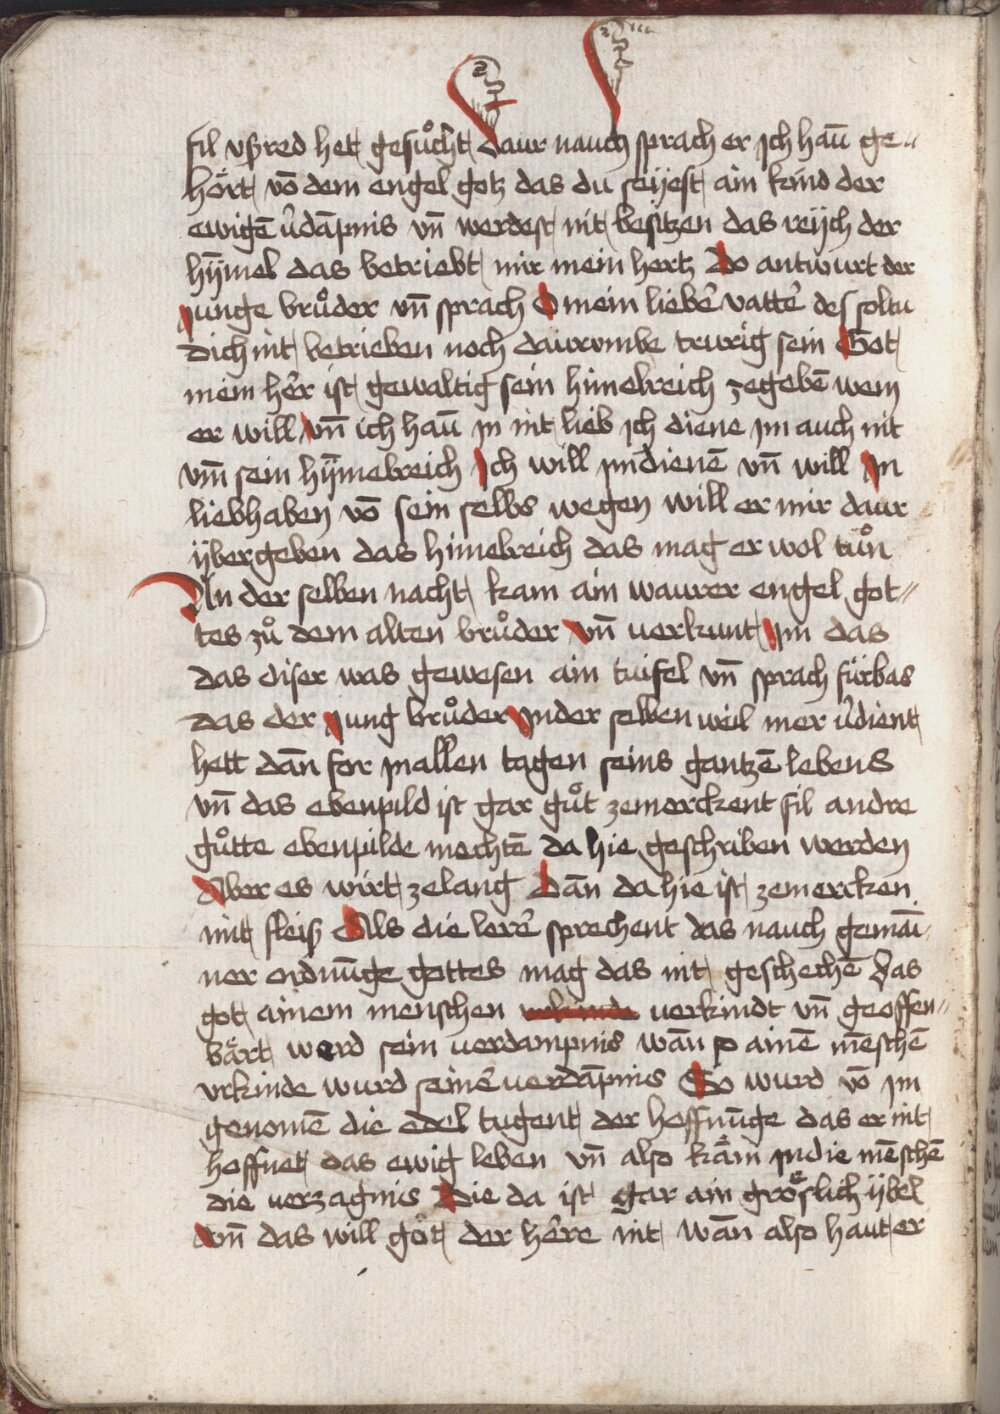 fil vßred hett gesůcht Daur nauch sprach er jch hau̅ ge〃
hört vo̅ dem engel gotz das du seijest ain kind der
ewige̅ v̉da̅pnis vn̅ werdest nit besitzen das reijch der
hÿm̅el das betriebt mir mein hertz Do antwurt der
junge brůder vn̅ sprach O mein liebe᷑ vatte᷑ des soltu
dich nit betrieben noch daurvmbe trurig sein Got
mein he᷑r ist gewaltig sein himelreich zegebe̅ wem
er will vn̅ ich hau̅ jn nit lieb jch diene jm auch nit
vm̅ sein hÿm̅elreich Jch will jm diene̅ vn̅ will Jn
liebhaben vo̅ sein selbs wegen will er mir daur
ÿbergeben das himelreich das mag er wol tůn
An der selben nacht kam ain waurer engel got〃
tes zů dem alten brůder vn̅ verkunt jm das
das diser was gewesen ain tuifel vn̅ sprach fürbas
das der jung brůder jn der selben weil mer v̉dient
hett dan̅ for jn allen tagen seins gantze̅ lebens
vn̅ das ebenpild ist gar gůt zemerckent fil andre
gůtte ebenpilde mechte̅ da hie geschriben werden
Aber es wirt zelang Dan̅ da hie ist zemercken
mit fleiß Als die lere᷑ sprechent das nauch gemai̅
ner ordnu̅ge gottes mag das nit geschechen̅ das
got ainem menschen verkindt vn̅ geoffen〃
bärt werd sein verdampnis wan̅ so aine̅ me̅sche̅
vrkinde wurd seine᷑ verda̅pnis So wurd vo̅ jm
genome̅ die edel tugent der hoffnu̅ge das er nit
hoffnet das ewig leben vn̅ also käm jn die me̅sche̅
die verzagnis Die da ist gar ain größlich ÿbel
vn̅ das will got der he᷑re nit wan̅ also haut er